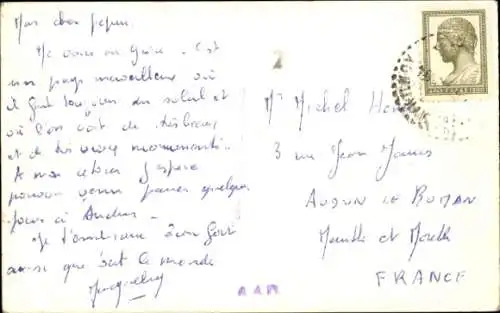 Mon cher pepere
Me voici en Grèce. C'est
un pays merveilleux où
il fait toujours du soleil et
où l'on voit de très beaux
et de très vieux monuments.
A mon retour j'espère
pouvoir venir passer quelques
jours à Audun.
Je t'embrasse bien fort
ainsi que tout le monde
2
Mr Michel
3 rue Jean Jaurès
AUDUN LE ROMAN
Meurthe et Moselle
FRANCE